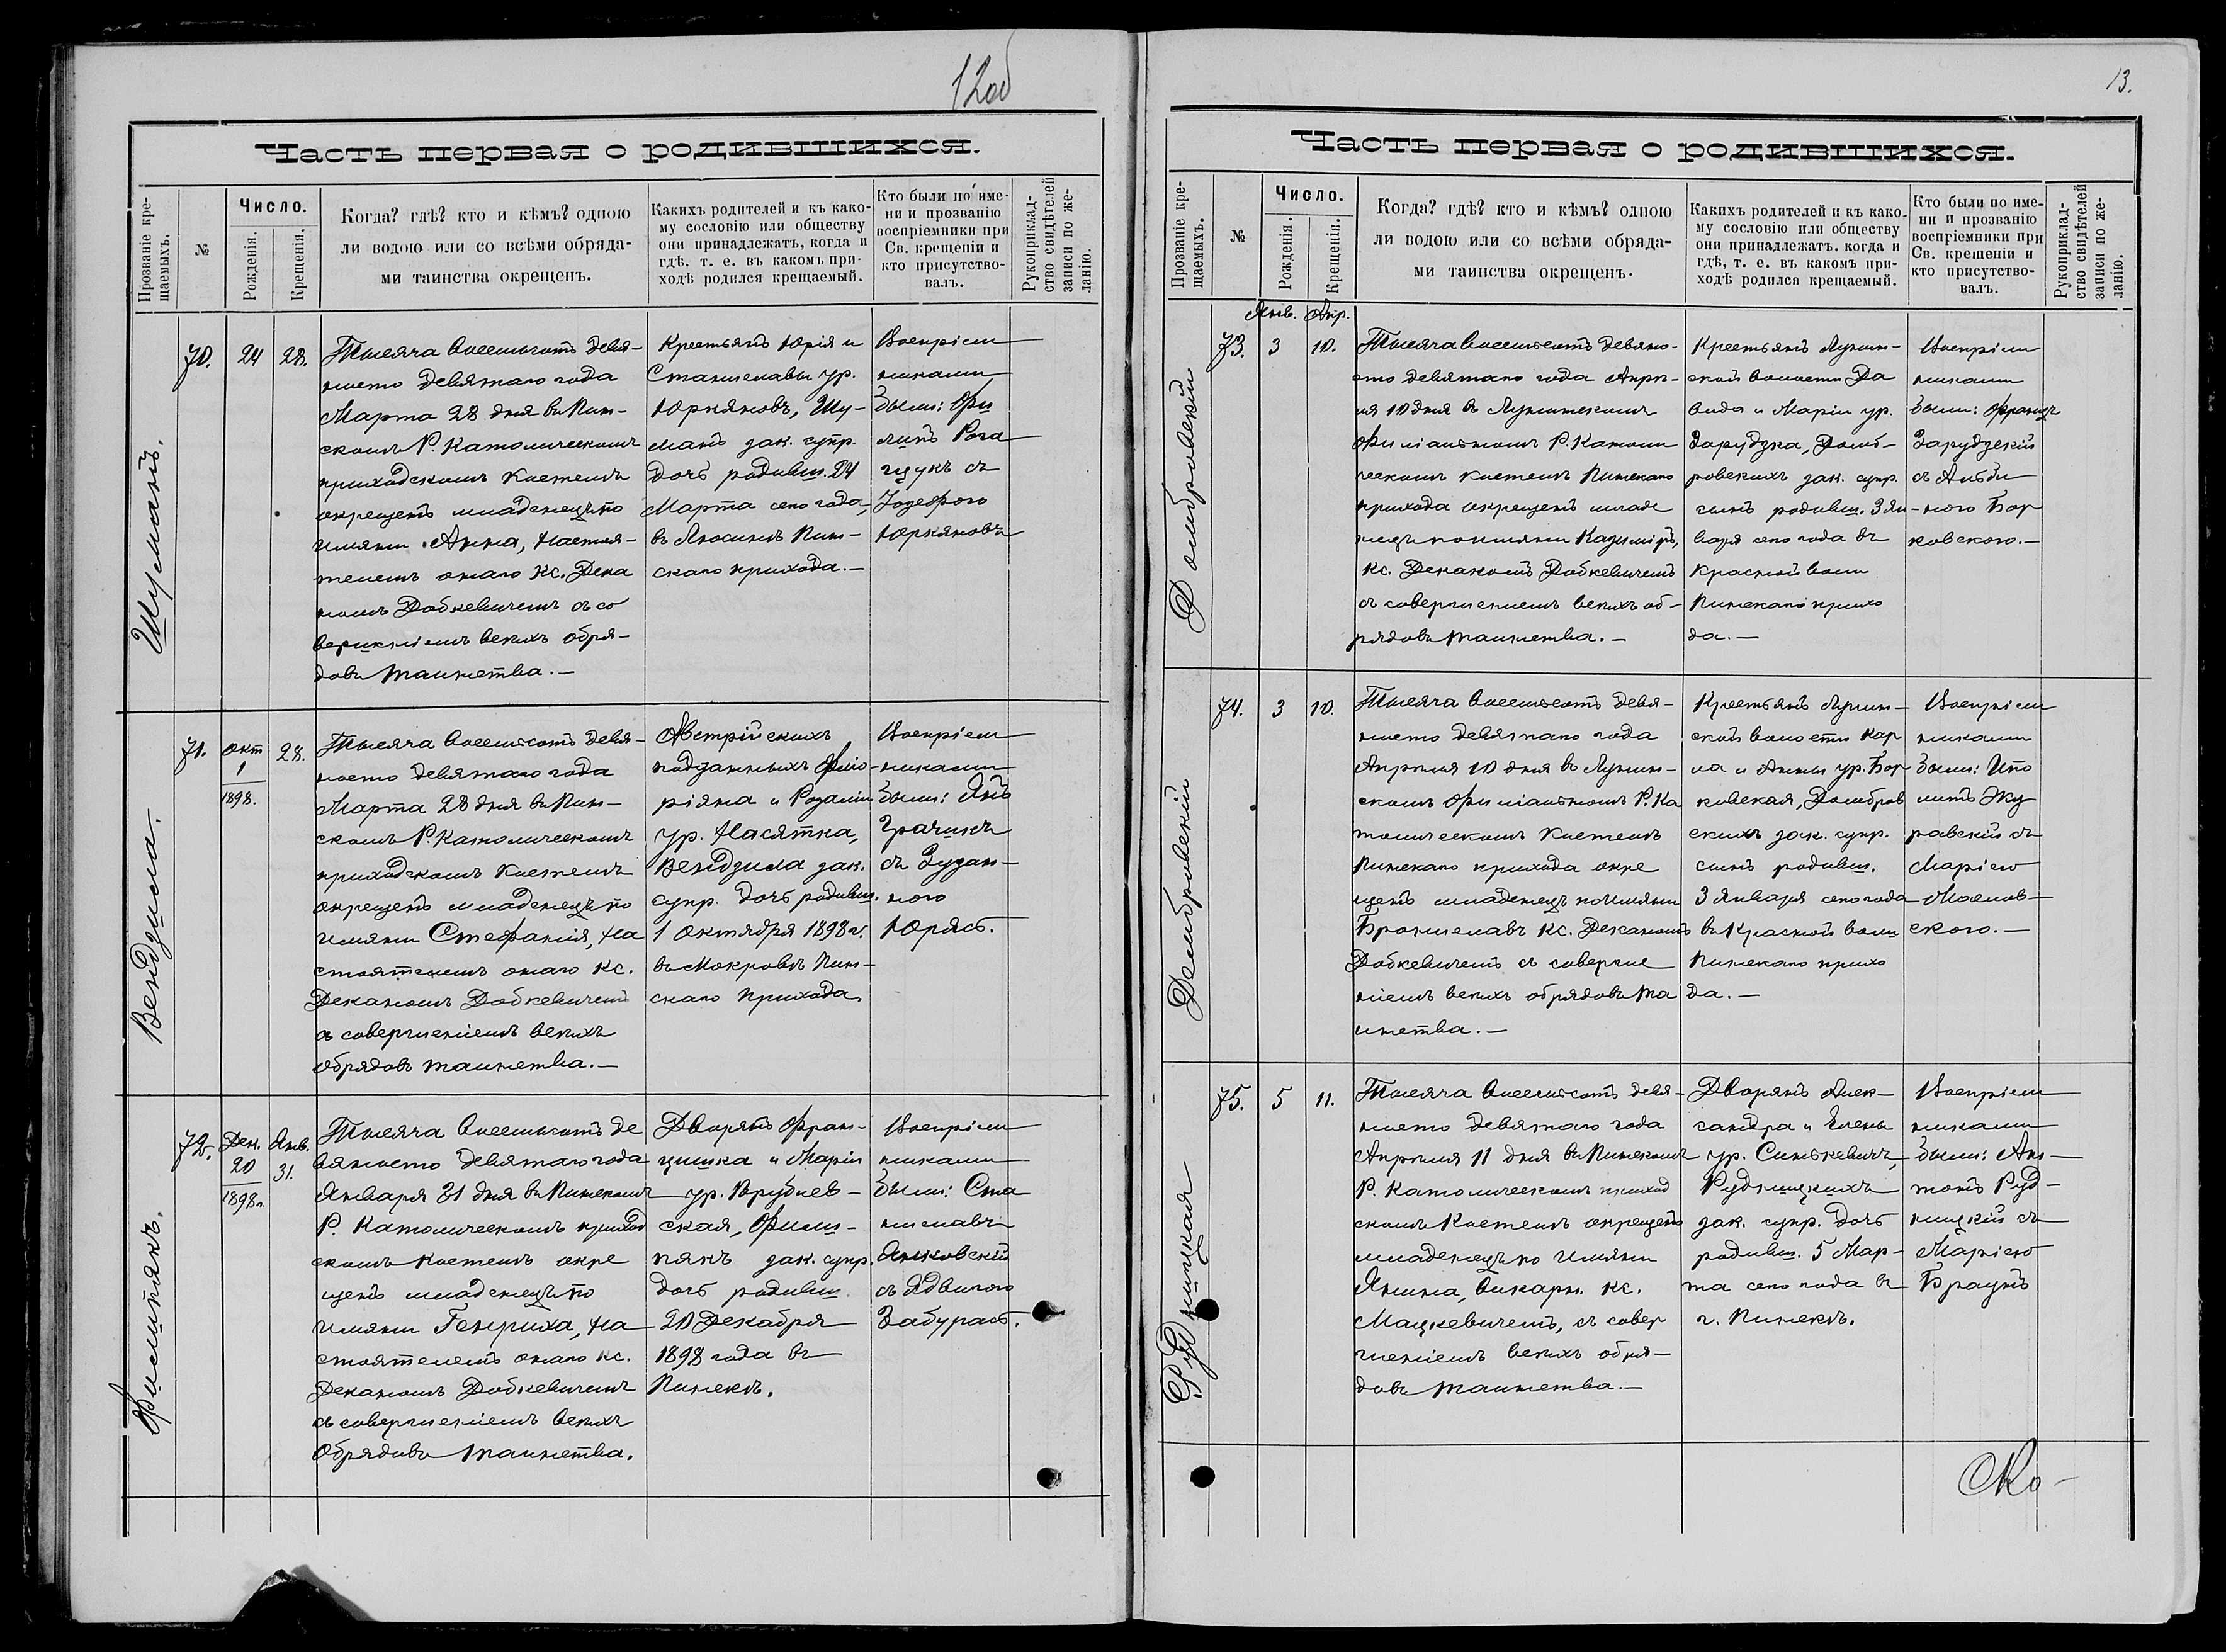 12об
Часть первая о родившихся.
Прозваніе кре-
щаемыхъ.
№
Число.
Рожденія.
Крещенія.
Когда? гдѣ? кто и кѣмъ? одною
ли водою или со всѣми обряда-
ми таинства окрещенъ.
Какихъ родителей и къ како-
му сословію или обществу
они принадлежатъ, когда и
гдѣ, т. е. въ какомъ при-
ходѣ родился крещаемый.
Кто были по име-
ни и прозванію
воспріемники при
Св. крещеніи и
кто присутство-
валъ.
Рукоприклад-
ство свидѣтелей
записи по же-
ланію.
Шуманъ.
70.
24
28.
Тысяча восемьсотъ девя-
носто девятаго года
Марта 28 дня въ Пин-
скомъ Р. Католическомъ
приходскомъ Костелѣ
окрещенъ младенецъ по
имяни Анна, Настоя-
телемъ онаго Кс. Дека
номъ Добкевичемъ съ со
вершеніемъ всѣхъ обря-
довъ таинства.—
Крестьянъ Юрія и
Станиславы ур.
Юркяновъ, Шу-
манъ зак. супр.
дочь родивш. 24
Марта сего года,
въ Люсинѣ Пин-
скаго прихода.—
Воспріем
никами
были: Фи
липъ Рога
цукъ съ
Іозефою
Юркяновъ
Вендзила.
71.
окт
1
1898.
28.
Тысяча восемьсотъ девя-
носто девятаго года
Марта 28 дня въ Пин-
скомъ Р. Католическомъ
приходскомъ Костелѣ
окрещенъ младенецъ по
имяни Стефанія, На
стоятелемъ онаго Кс.
Деканомъ Добкевичемъ
съ совершеніемъ всѣхъ
обрядовъ таинства.—
Австрійскихъ
подданныхъ Фло-
ріяна и Розаліи
ур. Насятка,
Вендзила зак.
супр. дочь родивш.
1 Октября 1898 г.
въ Мокровѣ Пин-
скаго прихода.
Воспріем
никами
были: Янъ
Грачикъ
съ Зузан-
ною
Юрясъ.
Филипякъ.
72.
Дек.
20
1898г.
Янв.
31.
Тысяча восемьсотъ де
вяносто девятаго года
Января 31 дня въ Пинскомъ
Р. Католическомъ приход
скомъ костелѣ окре
щенъ младенецъ по
имяни Генриха, На
стоятелемъ онаго Кс.
Деканомъ Добкевичемъ
съ совершеніемъ всѣхъ
Обрядовъ таинства.
Дворянъ Фран-
цишка и Маріи
ур. Врублев-
ская, Фили-
пякъ зак. супр.
дочь родивш.
20 Декабря
1898 года въ
Пинскѣ.
Воспріем
никами
были: Ста
ниславъ
Янковскій
съ Ядвигою
Забурасъ.
13.
Часть первая о родившихся.
Прозваніе кре-
щаемыхъ.
№
Число.
Рожденія.
Крещенія.
Когда? гдѣ? кто и кѣмъ? одною
ли водою или со всѣми обряда-
ми таинства окрещенъ.
Какихъ родителей и къ како-
му сословію или обществу
они принадлежатъ, когда и
гдѣ, т. е. въ какомъ при-
ходѣ родился крещаемый.
Кто были по име-
ни и прозванію
воспріемники при
Св. крещеніи и
кто присутство-
валъ.
Рукоприклад-
ство свидѣтелей
записи по же-
ланію.
Домбровскій
73.
Янв.
3
Апр.
10.
Тысяча восемьсотъ девяно-
сто девятаго года Апрѣ-
ля 10 дня въ Лунинскомъ
Филіальномъ Р. Католи
ческомъ костелѣ Пинскаго
прихода окрещенъ младе
нецъ по имяни Казиміръ,
Кс. Деканомъ Добкевичемъ
съ совершеніемъ всѣхъ об-
рядовъ таинства.—
Крестьянъ Лунин-
ской волости Да
вида и Маріи ур.
Зарудзка, Домб-
ровскихъ зак. супр.
сынъ родивш. 3 Ян-
варя сего года въ
Красной воли
Пинскаго прихо
да.—
Воспріем
никами
были: Францъ
Зарудзскій
съ Альби
ною Бор
ковскою.—
Домбровскій
74.
3
10.
Тысяча восемьсотъ девя-
носто девятаго года
Апрѣля 10 дня въ Лунин-
скомъ Филіальномъ Р. Ка
толическомъ Костелѣ
Пинскаго прихода окре
щенъ младенецъ по имяни
Брониславъ Кс. Деканомъ
Добкевичемъ съ соверше
ніемъ всѣхъ обрядовъ та
инства.—
Крестьянъ Лунин-
ской волости Кар
ла и Анны ур. Бор
ковская, Домбров
скихъ зак. супр.
сынъ родивш.
3 Января сего года
въ Красной воли
Пинскаго прихо
да.—
Воспріем
никами
были: Ипо
литъ Жу
равскій съ
Маріею
Маслов-
скою.—
Рудницкая
75.
5
11.
Тысяча восемьсотъ девя-
носто девятаго года
Апрѣля 11 дня въ Пинскомъ
Р. Католическомъ приход
скомъ Костелѣ окрещенъ
младенецъ по имяни
Янина, Викарн. Кс.
Мацкевичемъ, съ совер
шеніемъ всѣхъ обря-
довъ таинства.—
Дворянъ Алек-
сандра и Елены
ур. Синькевичъ,
Рудницкихъ
зак. супр. дочь
родивш. 5 Мар-
та сего года въ
г. Пинскѣ.
Воспріем
никами
были: Ан-
тонъ Руд-
ницкій съ
Маріею
Браунъ